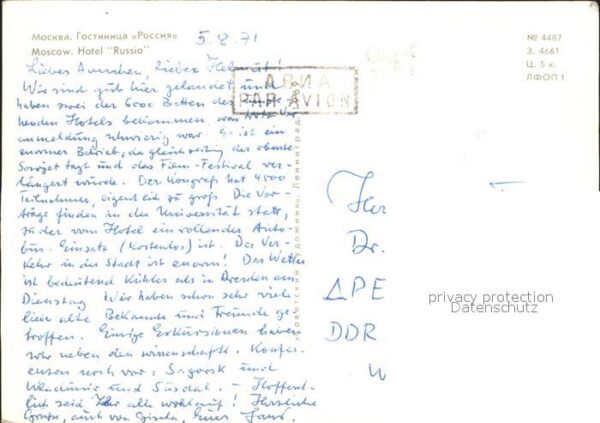 Москва. Гостиница «Россия»
Moscow. Hotel "Russia"
5.8.71
№ 4487
З. 4661
Ц. 5 к.
ЛФОП 1
АВИА
PAR AVION
Liebes Annchen, lieber Helmut!
Wir sind gut hier gelandet und
haben zwei der 6000 Betten des
henden Hotels bekommen, was trotz Vor-
anmeldung schwierig war. Es ist ein
enormer Betrieb, da gleichzeitig der oberste
Sowjet tagt und das Film-Festival ver-
längert wurde. Der Kongreß hat 4500
Teilnehmer, eigentlich zu groß. Die Vor-
träge finden in der Universität statt,
zu der vom Hotel ein rollender Auto-
bus-Einsatz (kostenlos) ist. Der Ver-
kehr in der Stadt ist enorm! Das Wetter
ist bedeutend kühler als in Dresden am
Dienstag. Wir haben schon sehr viele
liebe alte Bekannte und Freunde ge-
troffen. Einige Exkursionen haben
wir neben den wissenschaftl. Konfer-
enzen noch vor: Sagorsk und
Wladimir und Susdal. – Hoffent-
lich seid Ihr alle wohlauf! Herzliche
Grüße, auch von Gisela, Euer Hans.
Советский художник. Ленинград
Herr
Dr.
DDR
privacy protection
Datenschutz